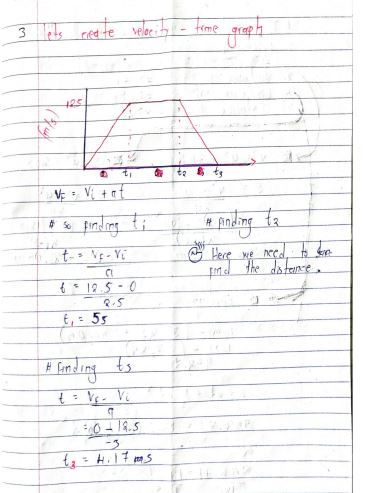 3 lets create velocity - time graph
12.5
(m/s)
t₁ t₂ t₃
VF = Vi + at
# so finding t₁
t = VF - Vi
a
t = 12.5 - 0
2.5
t₁ = 5s
# finding t₂
Here we need to
find the distance.
# finding t₃
t = VF - Vi
a
= 0 - 12.5
-3
t₃ = 4.17 ms